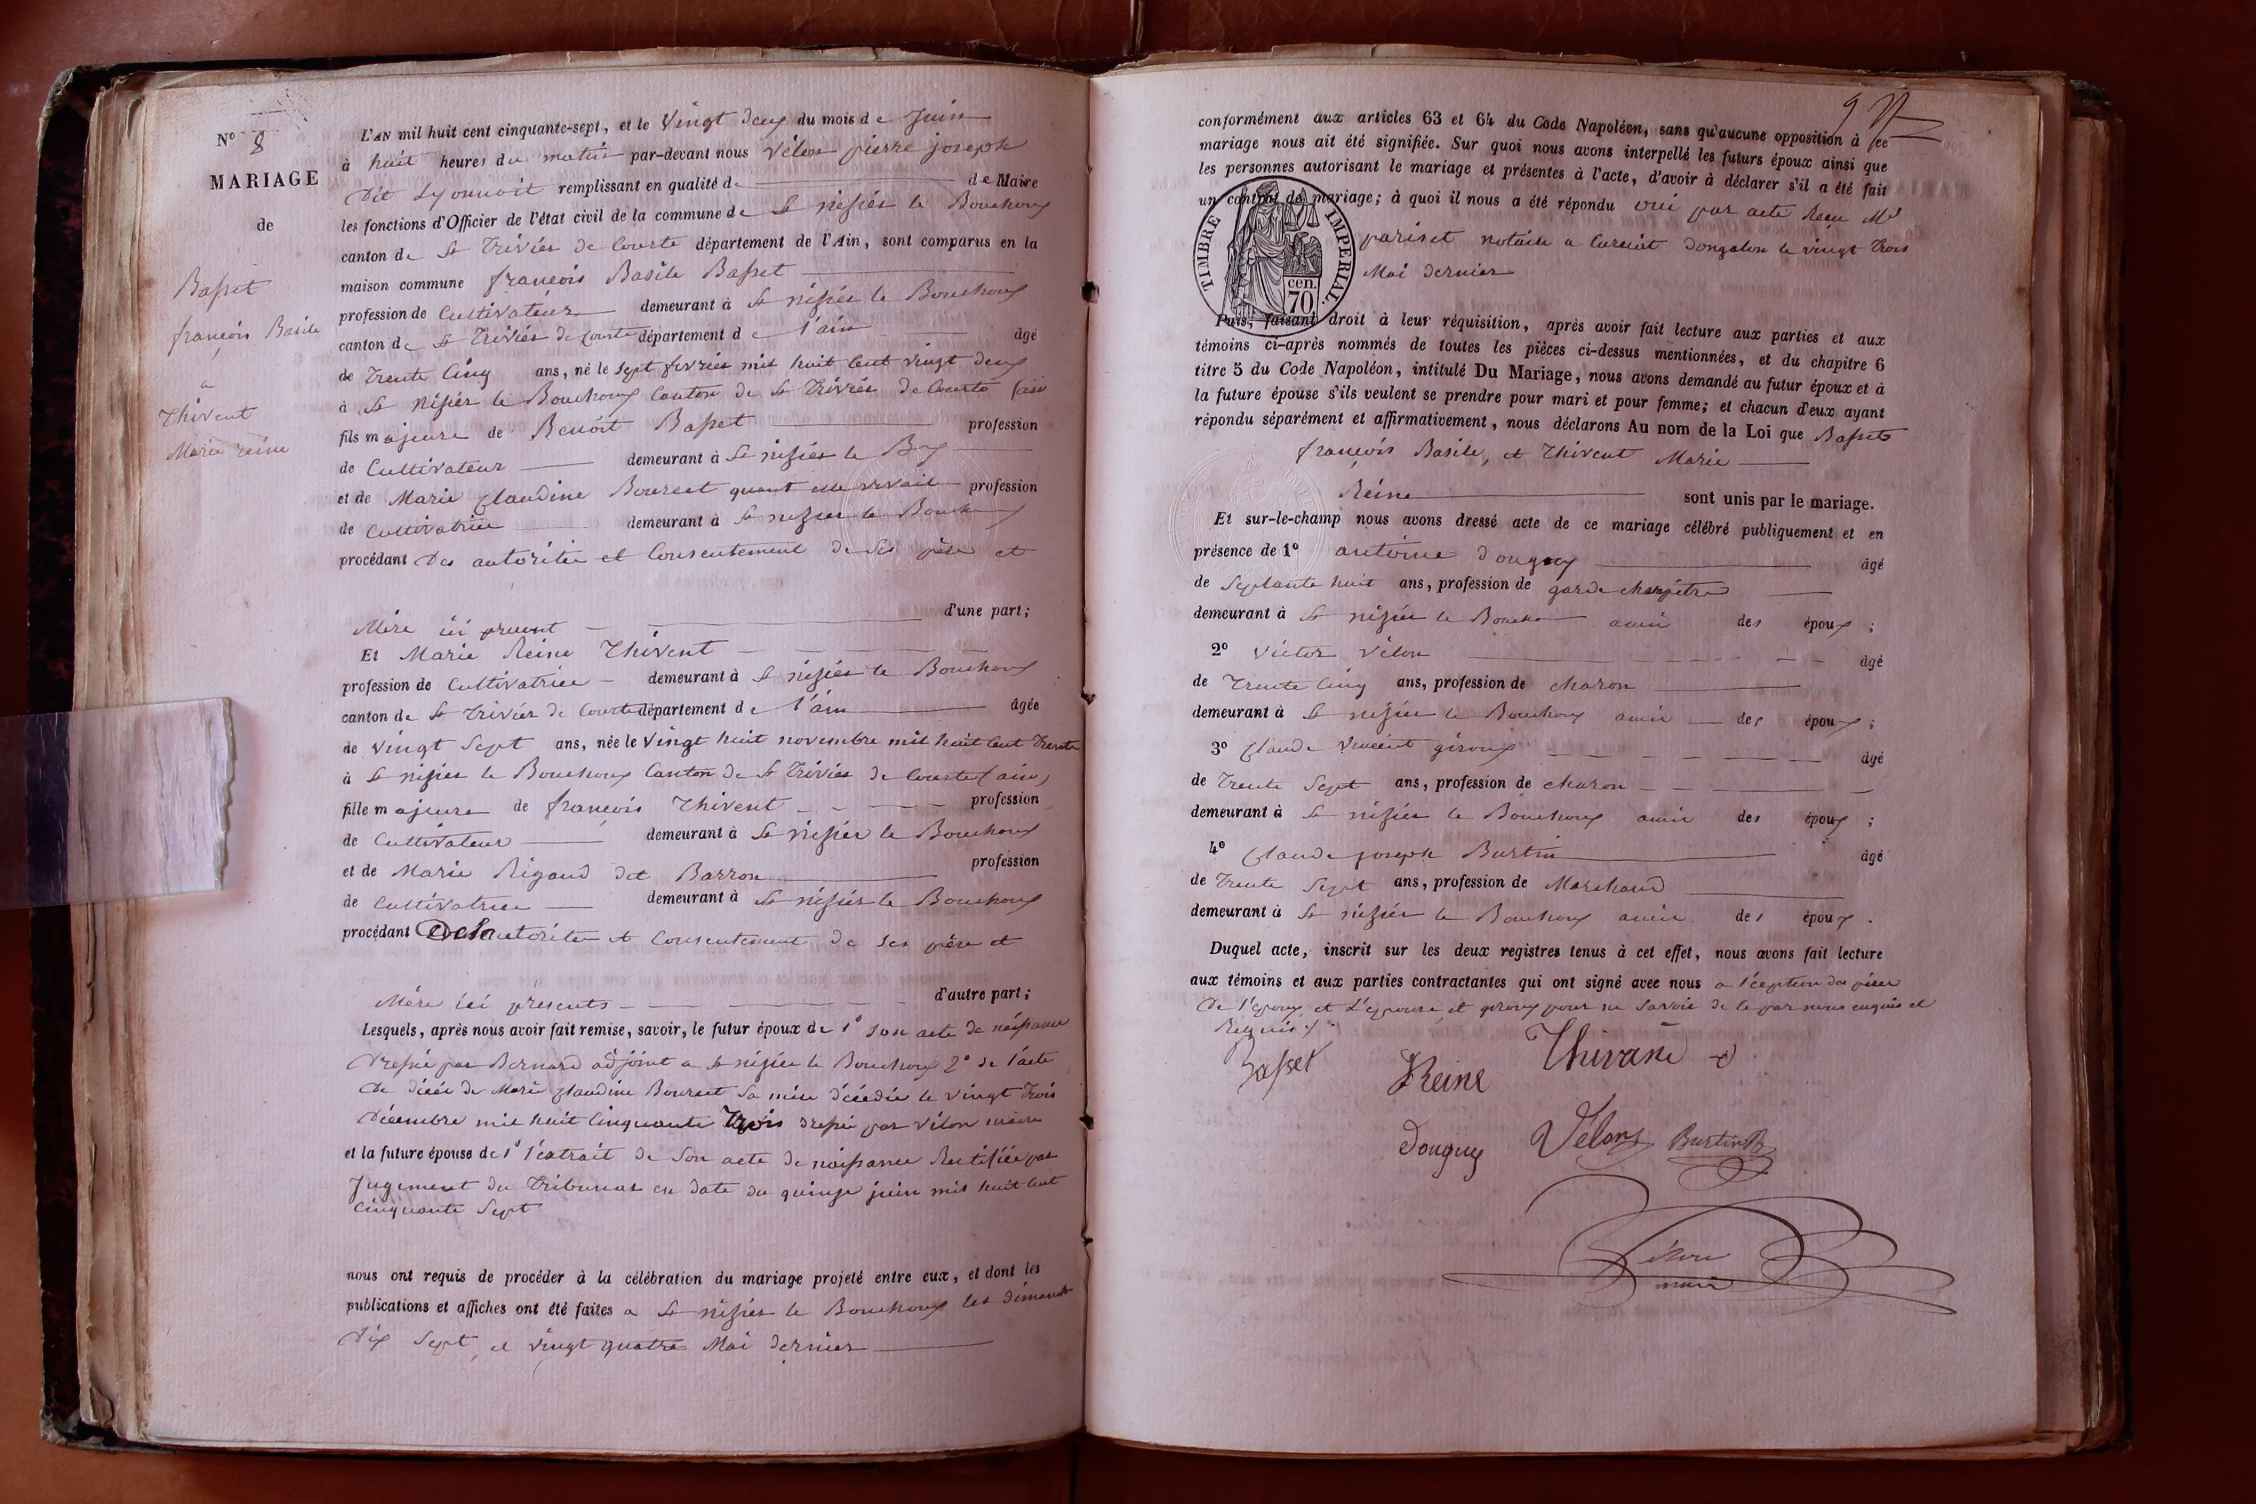 N° 8
MARIAGE
de
Basset
françois Basile
a
Thivent
Marie reine
L'AN mil huit cent cinquante-sept, et le Vingt deux du mois de Juin
à huit heures du matin par-devant nous Vélon pierre joseph
Dit Lyonnoit remplissant en qualité de de Maire
les fonctions d'Officier de l'état civil de la commune de St nizier le Bouchoux
canton de St Trivier de Courte département de l'Ain, sont comparus en la
maison commune françois Basile Basset
profession de Cultivateur demeurant à St nizier le Bouchoux
canton de St Trivier de Courte département de l'ain âgé
de Trente Cinq ans, né le Sept fevrier mil huit Cent vingt deux
à St Nizier le Bouchoux Canton de St Trivier de Courte
fils majeure de Benoit Basset profession
de Cultivateur demeurant à St nizier le Bx
et de Marie Claudine Bourcet quant elle vivait profession
de Cultivatrice demeurant à St nizier le Bouchoux
procédant Des autorite et Consentement de Ses père et
Mère ici present d'une part;
Et Marie Reine Thivent
profession de Cultivatrice demeurant à St nizier le Bouchoux
canton de St Trivier de Courte département de l'ain âgée
de Vingt Sept ans, née le Vingt huit novembre mil huit Cent Trente
à St nizier le Bouchoux Canton de St Trivier de Courte (ain)
fille majeure de françois Thivent profession
de Cultivateur demeurant à St nizier le Bouchoux
et de Marie Rigaud dit Barron profession
de Cultivatrice demeurant à St nizier le Bouchoux
procédant autorite et Consentement de Ses père et
Mère ici présents d'autre part;
Lesquels, après nous avoir fait remise, savoir, le futur époux de 1° Son acte de naissance
Dressé par Bernard adjoint a St nizier le Bouchoux 2° de l'acte
De décée de Marie Claudine Bourcet Sa mère décédée le vingt Trois
Décembre mil huit Cinquante Trois dressé par Vélon maire
et la future épouse de 1° l'extrait de Son acte de naissance Rectifiée par
Jugement du Tribunal en date du quinze juin mil huit Cent
Cinquante Sept
nous ont requis de procéder à la célébration du mariage projeté entre eux, et dont les
publications et affiches ont été faites a St nizier le Bouchoux les dimanche
Dix Sept, et vingt quatre Mai dernier
9
conformément aux articles 63 et 64 du Code Napoléon, sans qu'aucune opposition à ce
mariage nous ait été signifiée. Sur quoi nous avons interpellé les futurs époux ainsi que
les personnes autorisant le mariage et présentes à l'acte, d'avoir à déclarer s'il a été fait
un contrat de mariage; à quoi il nous a été répondu oui par acte Recu Me
pariset notaire a Curciat dongalon le vingt Trois
Mai dernier
TIMBRE IMPÉRIAL.
cen.
70
Puis, faisant droit à leur réquisition, après avoir fait lecture aux parties et aux
témoins ci-après nommés de toutes les pièces ci-dessus mentionnées, et du chapitre 6
titre 5 du Code Napoléon, intitulé Du Mariage, nous avons demandé au futur époux et à
la future épouse s'ils veulent se prendre pour mari et pour femme; et chacun d'eux ayant
répondu séparément et affirmativement, nous déclarons Au nom de la Loi que Basset
françois Basile, et Thivent Marie
Reine sont unis par le mariage.
Et sur-le-champ nous avons dressé acte de ce mariage célébré publiquement et en
présence de 1° antoine douguy âgé
de Septante huit ans, profession de garde champétre
demeurant à St nizier le Bouchoux amis des époux;
2° Victor Vélon âgé
de Trente Cinq ans, profession de charon
demeurant à St nizier le Bouchoux amis des époux;
3° Claude Vincent giroux âgé
de Trente Sept ans, profession de charon
demeurant à St nizier le Bouchoux amis des époux;
4° Claude joseph Burtin âgé
de Trente Sept ans, profession de Marchand
demeurant à St nizier le Bouchoux amis des époux.
Duquel acte, inscrit sur les deux registres tenus à cet effet, nous avons fait lecture
aux témoins et aux parties contractantes qui ont signé avec nous a l'éxeption du père
De l'époux, et L'épouse, et giroux pour ne Savoir de le par nous enquis et
Requis
Basset
Reine Thivant
Douguy Velon Burtin
Vélon
maire